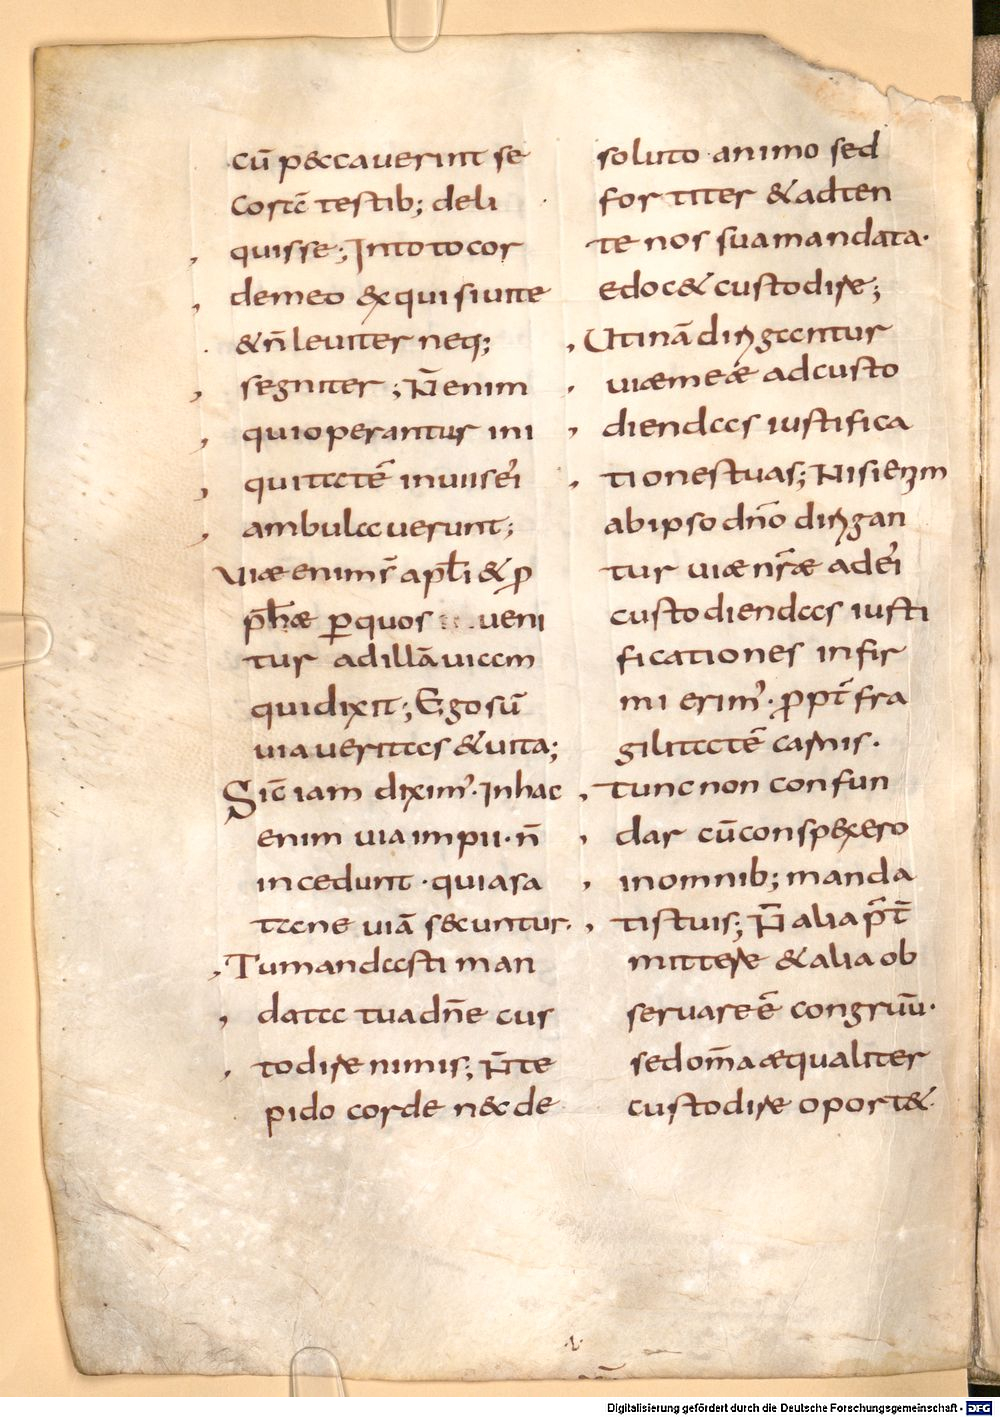 cū peccauerint se
Contē testib; deli
quisse; In toto cor
de meo exquisiui te
& n̄ leuiter neq;
segniter; N̄ enim
qui operantur ini
quitatē in uiis ei
ambulauerunt;
Viae enim s̄ apłi & ꝓ
phae ꝑ quos ueni
tur ad illā uiam
qui dixit; Ego sū
uia ueritas & uita;
Sic iam diximꝰ. In hac
enim uia impii. n̄
incedunt. quia sa
tane uiā secuntur.
Tu mandasti man
data tua dn̄e cus
todire nimis; N̄ te
pido corde nec de
soluto animo sed
fortiter & adten
te nos sua mandata.
e docet custodire;
Utinā dirigantur
uiae meae ad custo
diendas iustifica
tiones tuas; Nisi enim
ab ipso dn̄o dirigan
tur uiae nr̄ae ad ei
custodiendas iusti
ficationes infir
mi erimꝰ. ꝓpt̄ fra
gilitatē carnis.
Tunc non confun
dar cū conspexero
in omnib; manda
tis tuis; N̄ alia p̄t
mittere & alia ob
seruare ē congruū.
sed om̄a aequaliter
custodire oportet.
Digitalisierung gefördert durch die Deutsche Forschungsgemeinschaft - DFG